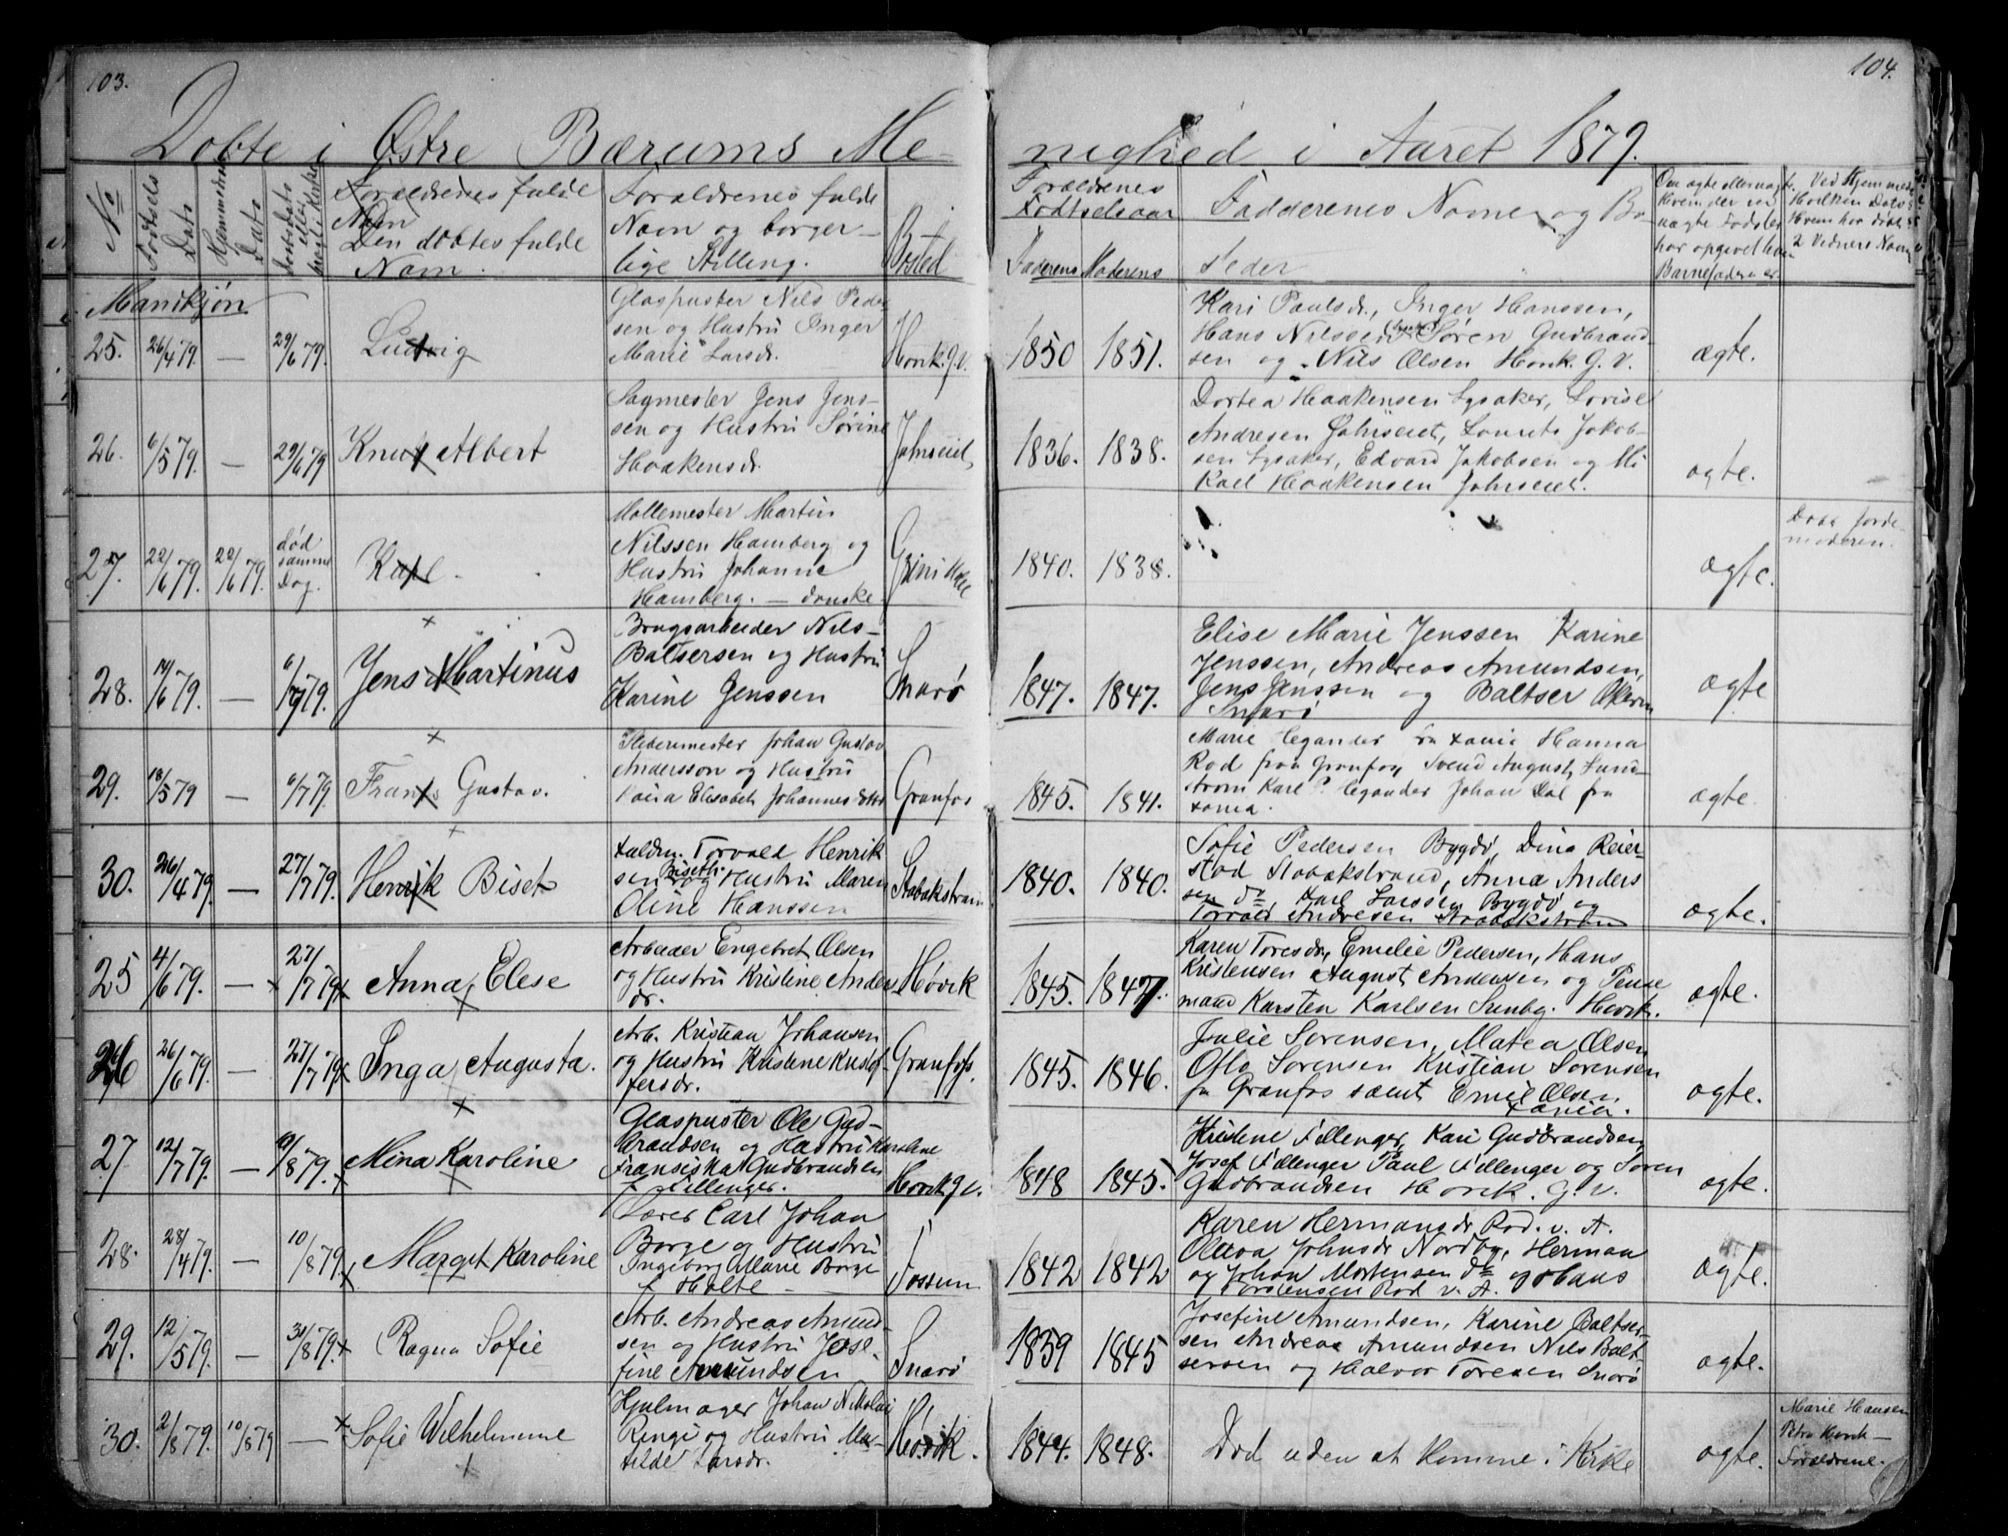 103.
104.
Døbte i Østre Bærums Me-
nighed i Aaret 1879.
No
Fødsels Dato
Hjemmedøbt Dato
Daabsdato eller bragt i Kirke
Forældrenes fulde
Navn
Den døbtes fulde
Navn.
Forældrenes fulde
Navn og borger-
lige Stilling.
Bosted
Forældrenes
Fødselsaar
Faderens Moderens
Fadderenes Navne og Bo-
steder
Mandkjøn
25. 26/4 79. — 29/6 79. Ludvig
Glaspuster Nils Peder-
sen og Hustru Inger
Marie Larsdr.
Høvik. g.v.
1850 1851.
Kari Paulsdr., Inger Hanssen,
Hans Nilssen, Søren Gudbrand-
sen og Nils Olsen Høvik. G. V.
ægte.
26. 6/5 79. — 29/6 79 Knut Albert
Sagmester Jens Jens-
sen og Hustru Sørine
Haakensdr.
Jahrseiet
1836. 1838.
Dortea Haakensen Lysaker, Lovise
Andresen Jahrseiet, Laurits Jakob-
sen Lysaker, Edvard Jakobsen og Mi
kael Haakensen Jahrseiet.
ægte.
27. 22/6 79. 22/6 79. død
samme
Dag.
Karl.
Møllemester Martin
Nilssen Hamberg og
Hustru Johanne
Hamberg. — danske
Grini Mølle
1840. 1838.
ægte.
Døbt Jorde-
moderen.
28. 19/6 79. — 6/7 79. Jens Martinus
Brugsarbeider Nils
Baltsersen og Hustru
Karine Jenssen
Snarø
1847. 1847.
Elise Marie Jenssen Karine
Jenssen, Andreas Amundsen,
Jens Jenssen og Baltser
Snarø
ægte
29. 18/5 79 — 6/7 79. Frans Gustav.
Johan Gustav
Andersson og Hustru
Elisabeth Johannesdatter
Granfos
1845. 1841.
Marie Hanna
Rød fra Granfos, Svend August Lund-
strøm Karl Johan Dal fra
ægte
30. 26/4 79. — 27/7 79. Henrik Biset
Torvald Henrik
sen Biseth og Hustru Maren
Oline Hanssen
Stabækstrand
1840. 1840.
Sofie Pedersen Bygdø, Dina Reier-
stad Stabækstrand, Anna Anders
sen do Karl Larssen Bygdø og
Torvald Andresen Stabækstrand
ægte.
25 4/6 79. — 27/7 79 Anna Elese
Arbeider Engebret Olsen
og Hustru Kristine Anders
dr.
Høvik
1845. 1847.
Karen Toresdr, Emelie Pedersen, Hans
Kristensen August Andersen og
mand Karsten Karlsen Sunby. Høvik.
ægte.
26 26/6 79. — 27/7 79 Inga Augusta.
Arb. Kristian Johansen
og Hustru Kristene Kristof-
fersdr.
Granfos.
1845. 1846.
Julie Sørensen, Matea Olsen
Otto Sørensen Kristian Sørensen
fr Granfos samt Emil Olsen
ægte.
27 12/7 79. — 8 79. Mina Karoline
Glaspuster Ole Gud-
brandsen og Hustru Karoline
Fransiska Gudbrandsen
f. Fillenger.
Høvik g v.
1848 1845.
Kristene Fillenger, Kari Gudbrandsen
Josef Fillenger Paul Fillenger og Søren
Gudbrandsen Høvik. g. v.
ægte.
28. 28/4 79. — 10/8 79. Margit Karoline
Lærer Carl Johan
Borge og Hustru
Ingeborg Marie Borge
f Holte —
Fossum
1842 1842
Karen Hermansdr Rød. v. A.
Johnsdr Nordby, Herman
og Johan Mortensen do og Hans
Torstensen Rød v. A.
ægte.
29. 12/5 79. — 31/8 79. Ragna Sofie
Arb. Andreas Amund-
sen og Hustru Jose-
fine Amundsen
Snarø
1839 1845
Josefine Amundsen, Karine Baltser-
sen Andreas Amundsen Nils Balt-
sersen og Halvor Toresen Snarø
ægte.
30. 2/8 79. 10/8 79 — Sofie Wilhelmine
Hjulmager Johan Nikolai
Ringi og Hustru Ma-
tilde Larsdr.
Høvik.
1844. 1848.
Død uden at komme i Kirke
ægte.
Marie Hansen
Petra Høvik —
Forældrene.